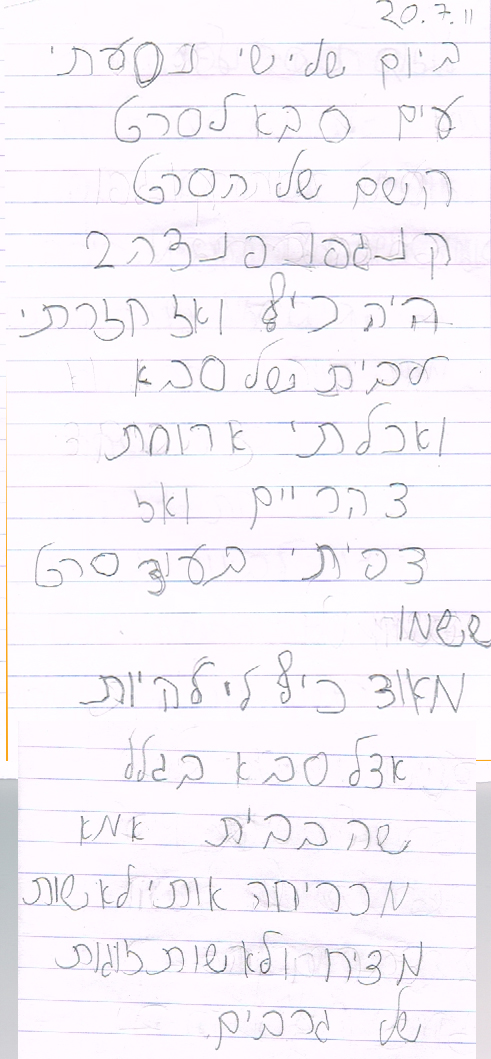 20.7.11
ביום שלישי נסעתי
עים סבא לסרט
השם של הסרט
קונגפו פנדה 2
היה כיף ואז חזרתי
לבית של סבא
ואכלתי ארוחת
צהריים ואז
צפיתי בעוד סרט
ששמו
מאוד כיף לי להיות
אצל סבא בגלל
שהבבית אמא
מכריחה אותי לאשות
מציח ולאשות זוגות
של גרבים